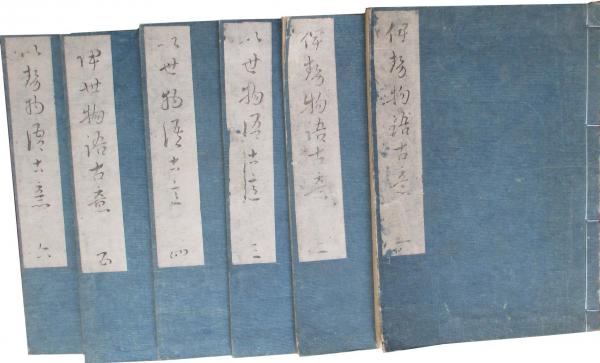 伊勢物語古意
伊勢物語古意 二
以世物語古意 三
以世物語古意 四
伊世物語古意 五
以勢物語古意 六